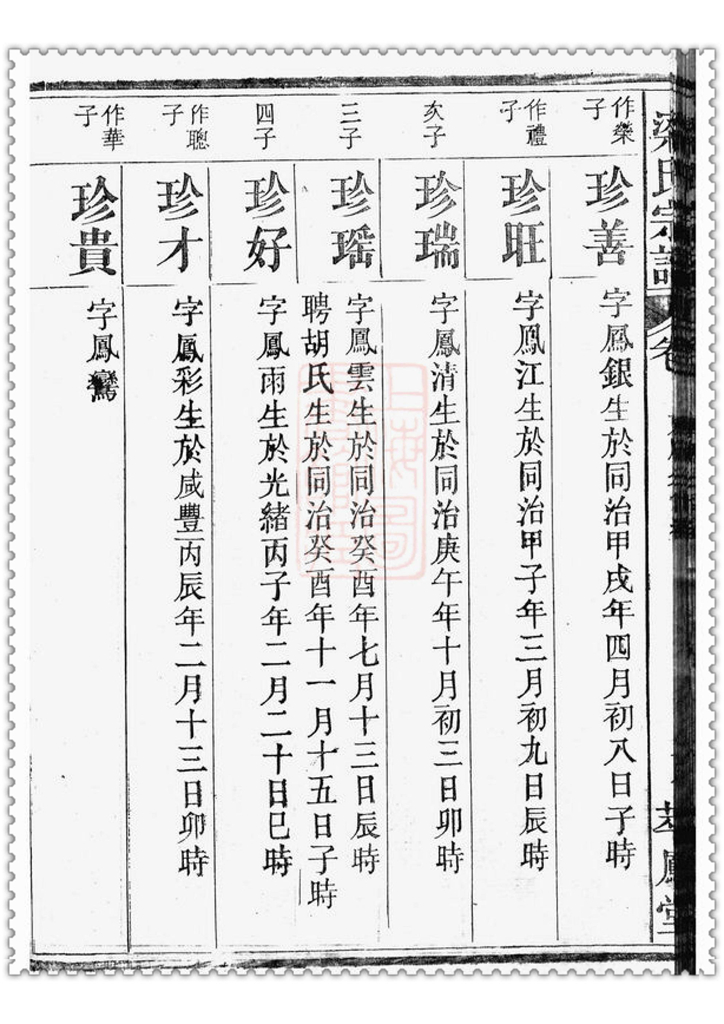 梁氏宗譜
卷
萃鳳堂
作榮子
珍善
字鳳銀生於同治甲戌年四月初八日子時
作禮子
珍旺
字鳳江生於同治甲子年三月初九日辰時
次子
珍瑞
字鳳清生於同治庚午年十月初三日卯時
三子
珍瑶
字鳳雲生於同治癸酉年七月十三日辰時
聘胡氏生於同治癸酉年十一月十五日子時
四子
珍好
字鳳雨生於光緒丙子年二月二十日巳時
作聰子
珍才
字鳳彩生於咸豐丙辰年二月十三日卯時
作華子
珍貴
字鳳鸞